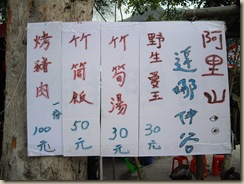 阿里山
達哪伊谷
野生愛玉
30元
竹筍湯
30元
竹筒飯
50元
烤豬肉
一份
100元